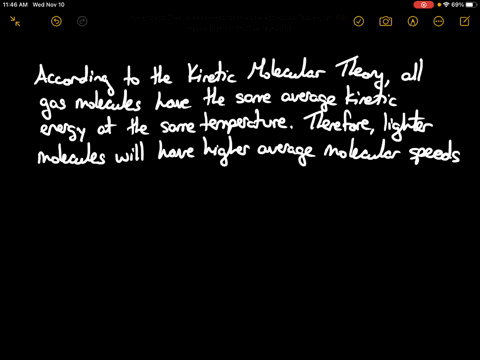 11:46 AM Wed Nov 10
69%
According to the Kinetic Molecular Theory, all
gas molecules have the same average kinetic
energy at the same temperature. Therefore, lighter
molecules will have higher average molecular speeds